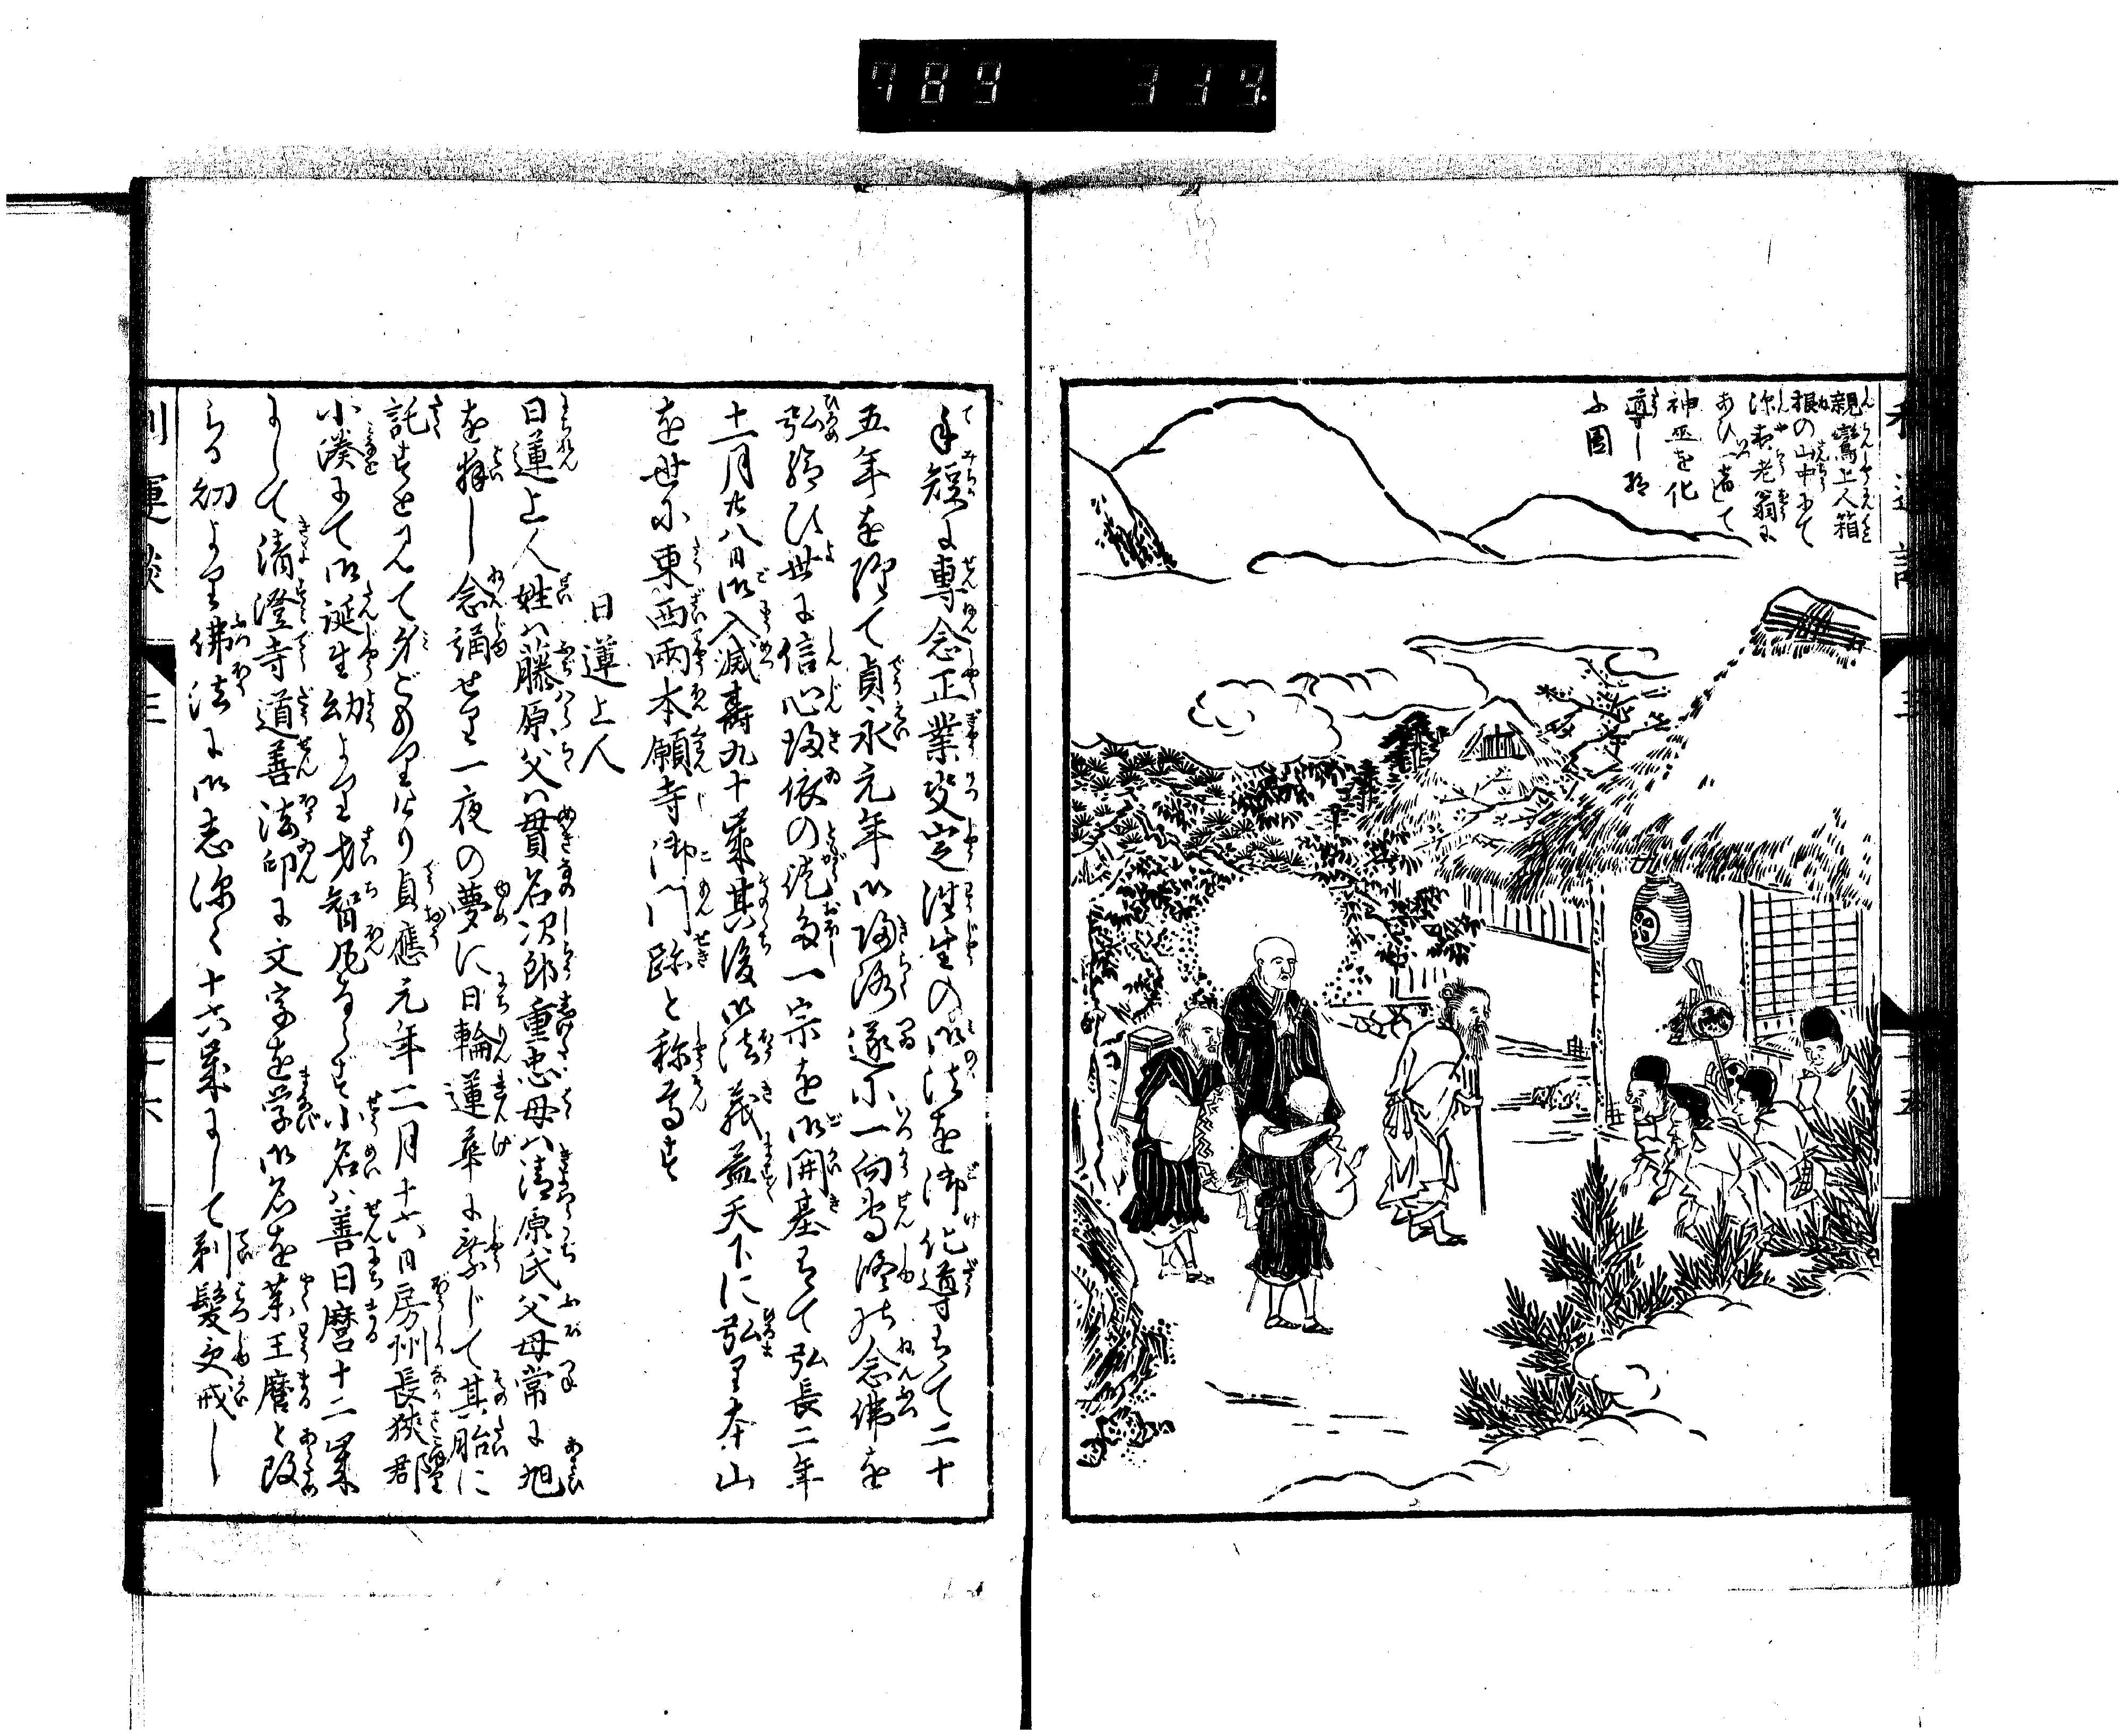 789 339.
親鸞上人箱
根の山中にて
深夜老翁に
あひ一道して
神巫を化
導し給
ふ図
手短に専念正業安定往生の御法を御化導有て二十
五年を経て貞永元年御帰洛遂に一向専修の念佛を
弘給ひ世に信心帰依の徒多一宗を御開基有て弘長二年
十一月廿八日御入滅壽九十歳其後御法義益天下に弘り本山
を世に東西両本願寺御門跡と称す
日蓮上人
日蓮上人姓ハ藤原父ハ貫名次郎重忠母ハ清原氏父母常に旭
を拝し念誦せり一夜の夢に日輪蓮華に乗じて其胎に
託すと見て身ごもりけり貞應元年二月十六日房州長狭郡
小湊にて御誕生幼より才智凡ならず小名ハ善日麿十二歳
にして清澄寺道善法印に文字を学御名を薬王麿と改
らる幼より佛法に御志深く十六歳にして剃髪受戒し
利運談 三
十六